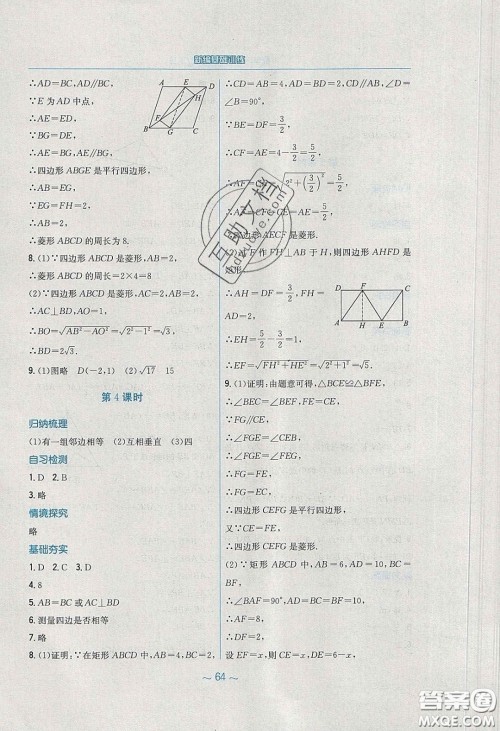 新编基础训练
∴AD=BC,AD∥BC.
∵E为AD中点,
∴AE=ED.
∵BG=DE,
∴AE=BG.
∴四边形ABGE是平行四边形.
∴AB=EG,
∵EG=FH=2,
∴AB=2,
∴菱形ABCD的周长为8.
8.(1)∵四边形ABCD是菱形,AB=2,
∴菱形ABCD的周长=2×4=8
(2)∵四边形ABCD是菱形,AC=2,AB=2,
∴AC⊥BD,AO=1,
∴BO=√AB²-AO²=√2²-1²=√3
∴BD=2√3.
9.(1)图略 D(-2,1) (2)√17 15
第4课时
归纳梳理
(1)有一组邻边相等 (2)互相垂直 (3)四
自习检测
1.D 2.B
3.略
情境探究
略
基础夯实
1.D 2.C 3.D
4.8
5.AB=BC或AC⊥BD
6.测量四边是否相等
7.略
8.(1)证明:∵在矩形ABCD中,AB=4,BC=2,
∴CD=AB=4,AD=BC=2,CD∥AB,∠D=
∠B=90°.
∵BE=DF=3/2,
∴CF=AE=4-3/2=5/2,
∴AF=CE=√2²+(3/2)²=5/2,
∴AF=CF=CE=AE=5/2,
∴四边形AECF是菱形.
(2)过F作FH⊥AB于H,则四边形AHFD是
矩形,
∴AH=DF=3/2,FH=AD=2,
∴EH=5/2-3/2=1,
∴EF=√FH²+HE²=√2²+1²=√5.
9.(1)证明:由题意可得,△BCE≌△BFE,
∴∠BEC=∠BEF,FE=CE,
∵FG∥CE,
∴∠FGE=∠CEB,
∴∠FGE=∠FEG,
∴FG=FE,
∴FG=EC,
∴四边形CEFG是平行四边形,
又∵CE=FE,
∴四边形CEFG是菱形.
(2)∵矩形ABCD中,AB=6,AD=10,BC=
BF,
∴∠BAF=90°,AD=BC=BF=10,
∴AF=8,
∴DF=2,
设EF=x,则CE=x,DE=6-x,
A E D
F H
B G C
D F C
A E H B
~64~
互助文档
答案圈
MXQE.COM